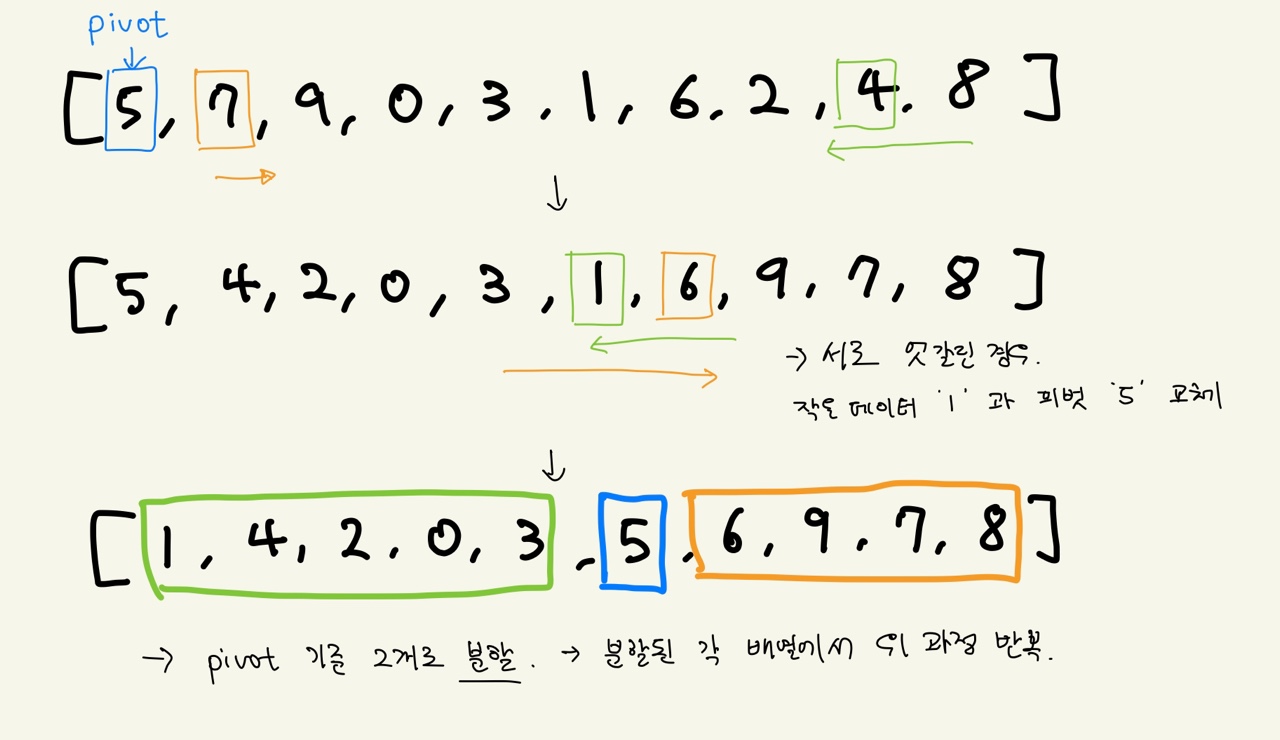 pivot
[5, 7, 9, 0, 3, 1, 6, 2, 4, 8]
[5, 4, 2, 0, 3, 1, 6, 9, 7, 8]
→ 서로 엇갈린 경우.
작은 데이터 '1' 과 피벗 '5' 교체
[1, 4, 2, 0, 3, 5, 6, 9, 7, 8]
→ pivot 기준 2개로 분할. → 분할된 각 배열에서 위 과정 반복.